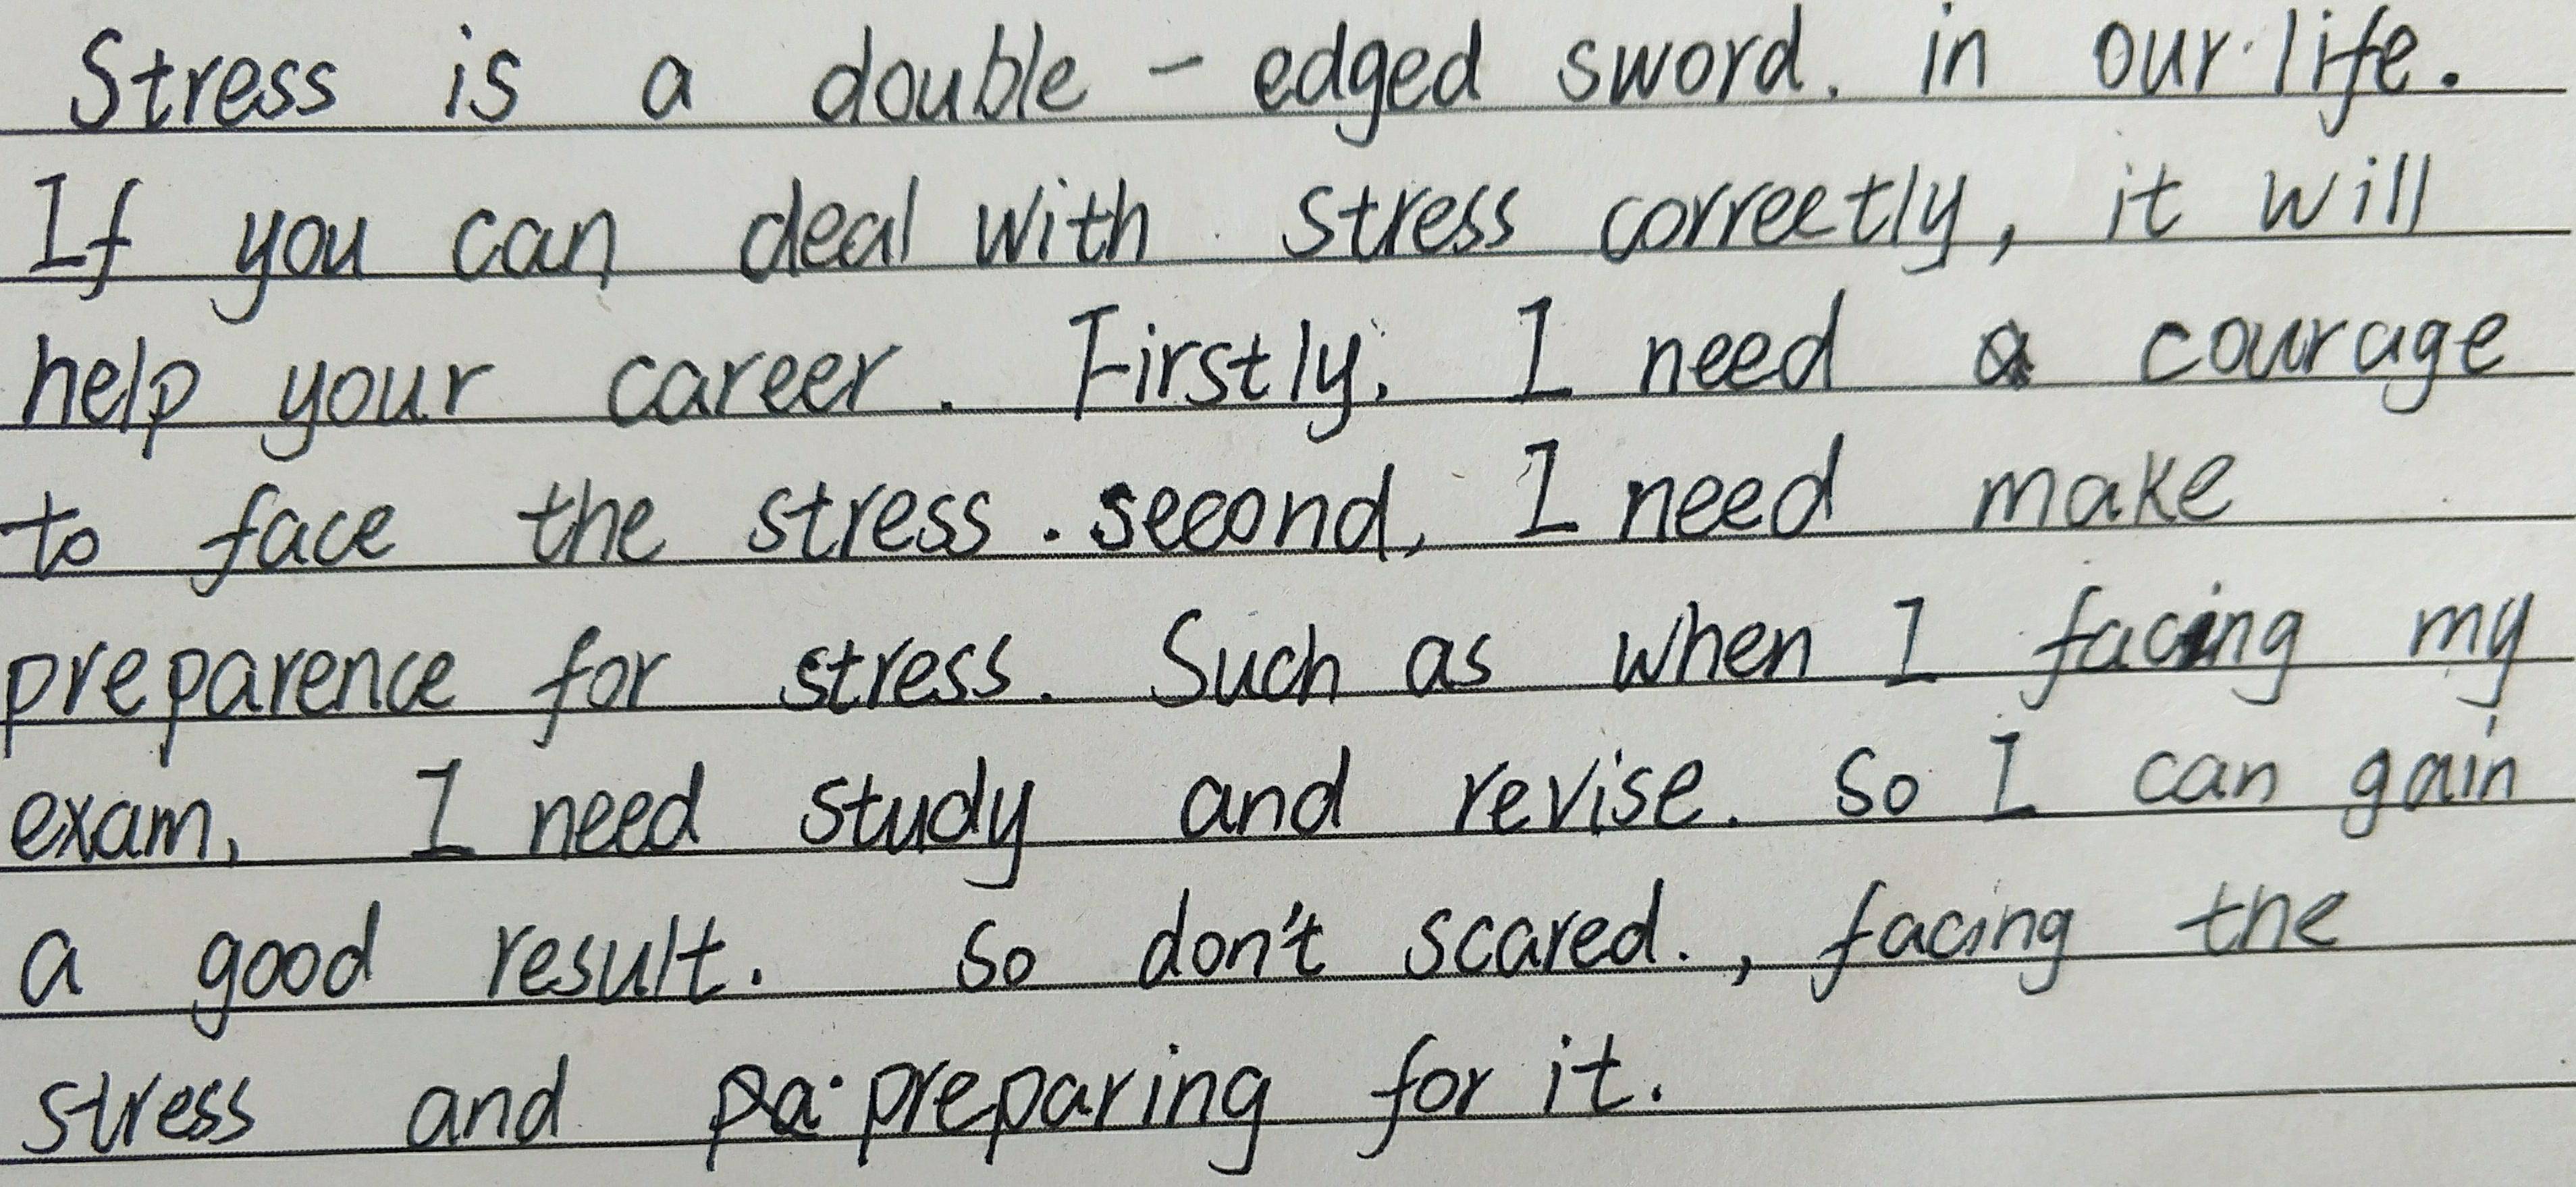 Stress is a double - edged sword. in our life.
If you can deal with stress correctly, it will
help your career. Firstly, I need a courage
to face the stress. second, I need make
preparence for stress. Such as when I facing my
exam, I need study and revise. So I can gain
a good result. So don't scared., facing the
stress and pa preparing for it.